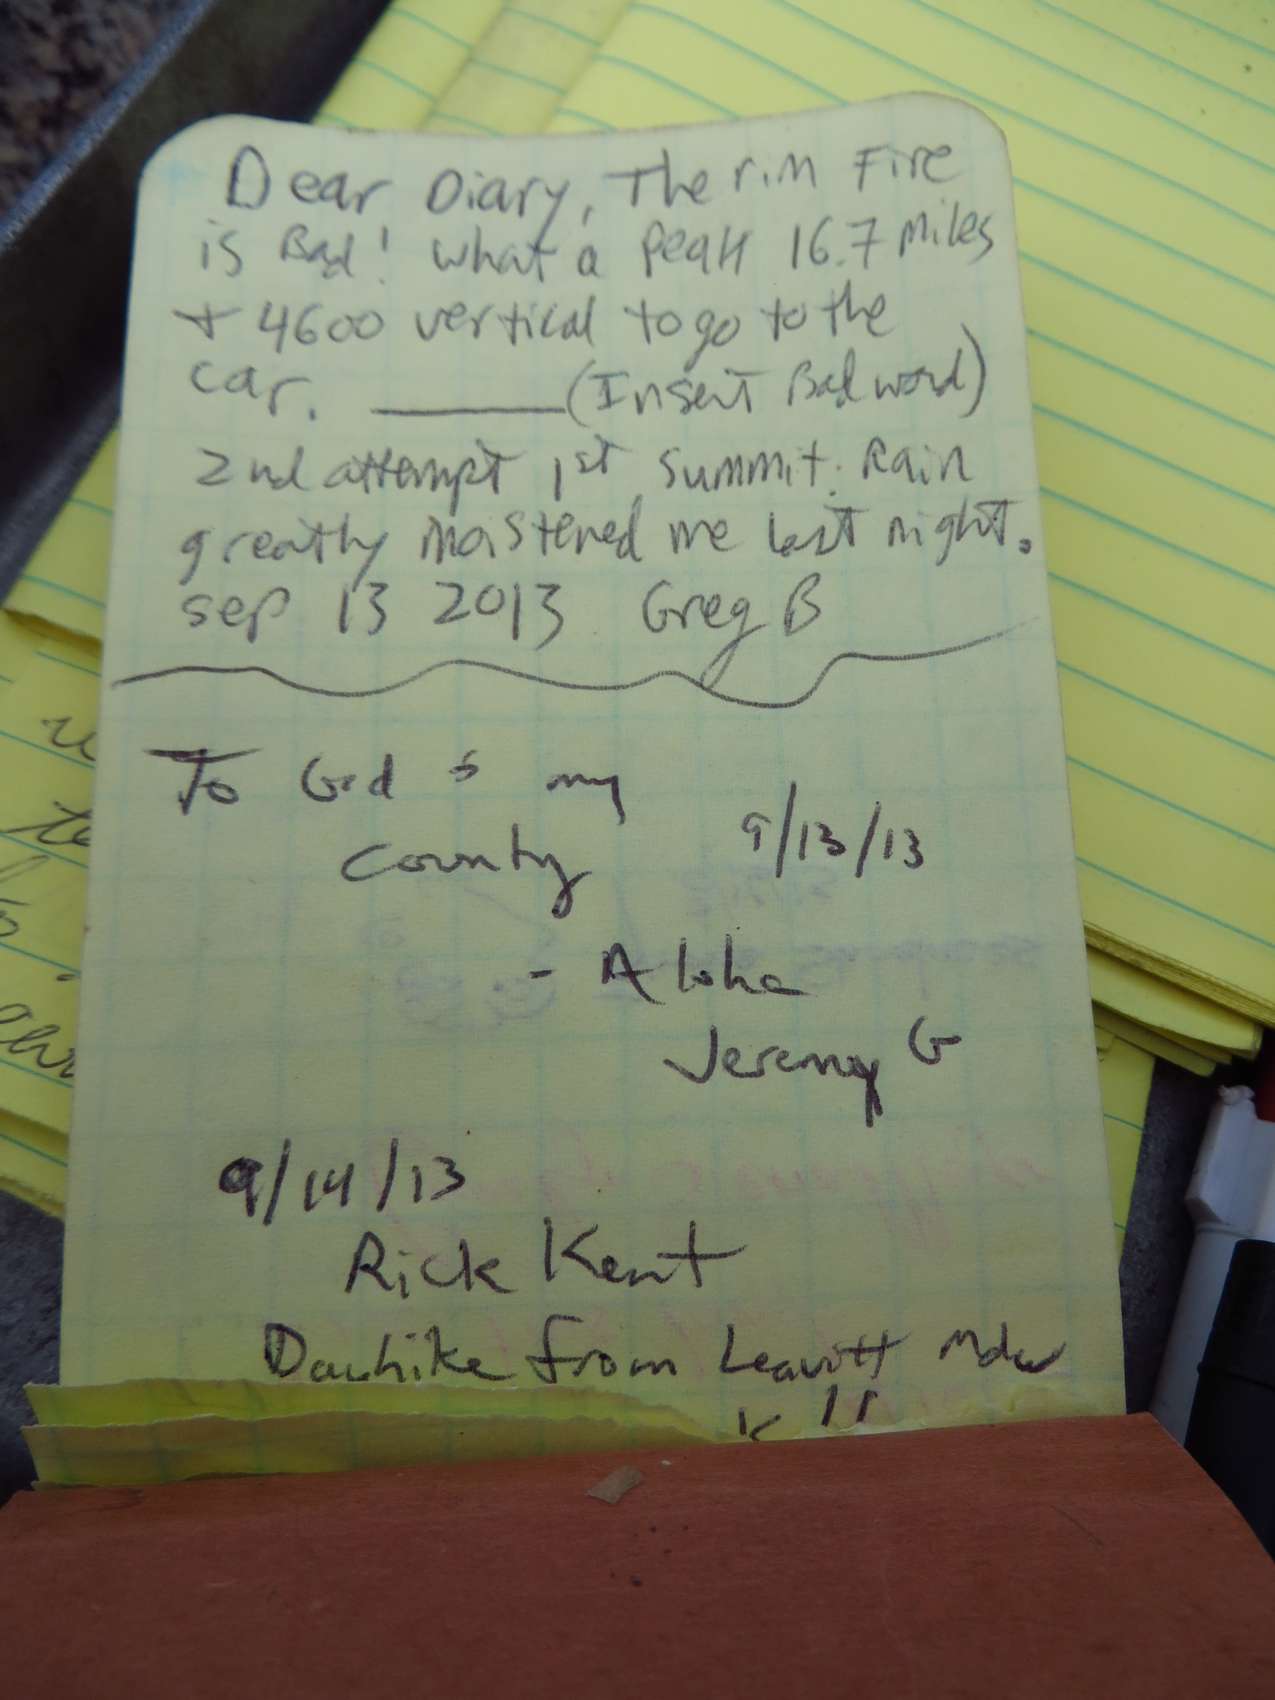 Dear Diary, The rim Fire
is Bad! what a peak 16.7 miles
+ 4600 vertical to go to the
car. ______ (Insert Bad word)
2nd attempt 1st summit. Rain
greatly moistened me last night.
sep 13 2013 Greg B
To God & my
County 9/13/13
- Aloha
Jeremy G
9/14/13
Rick Kent
Dayhike from Leavitt Mdw